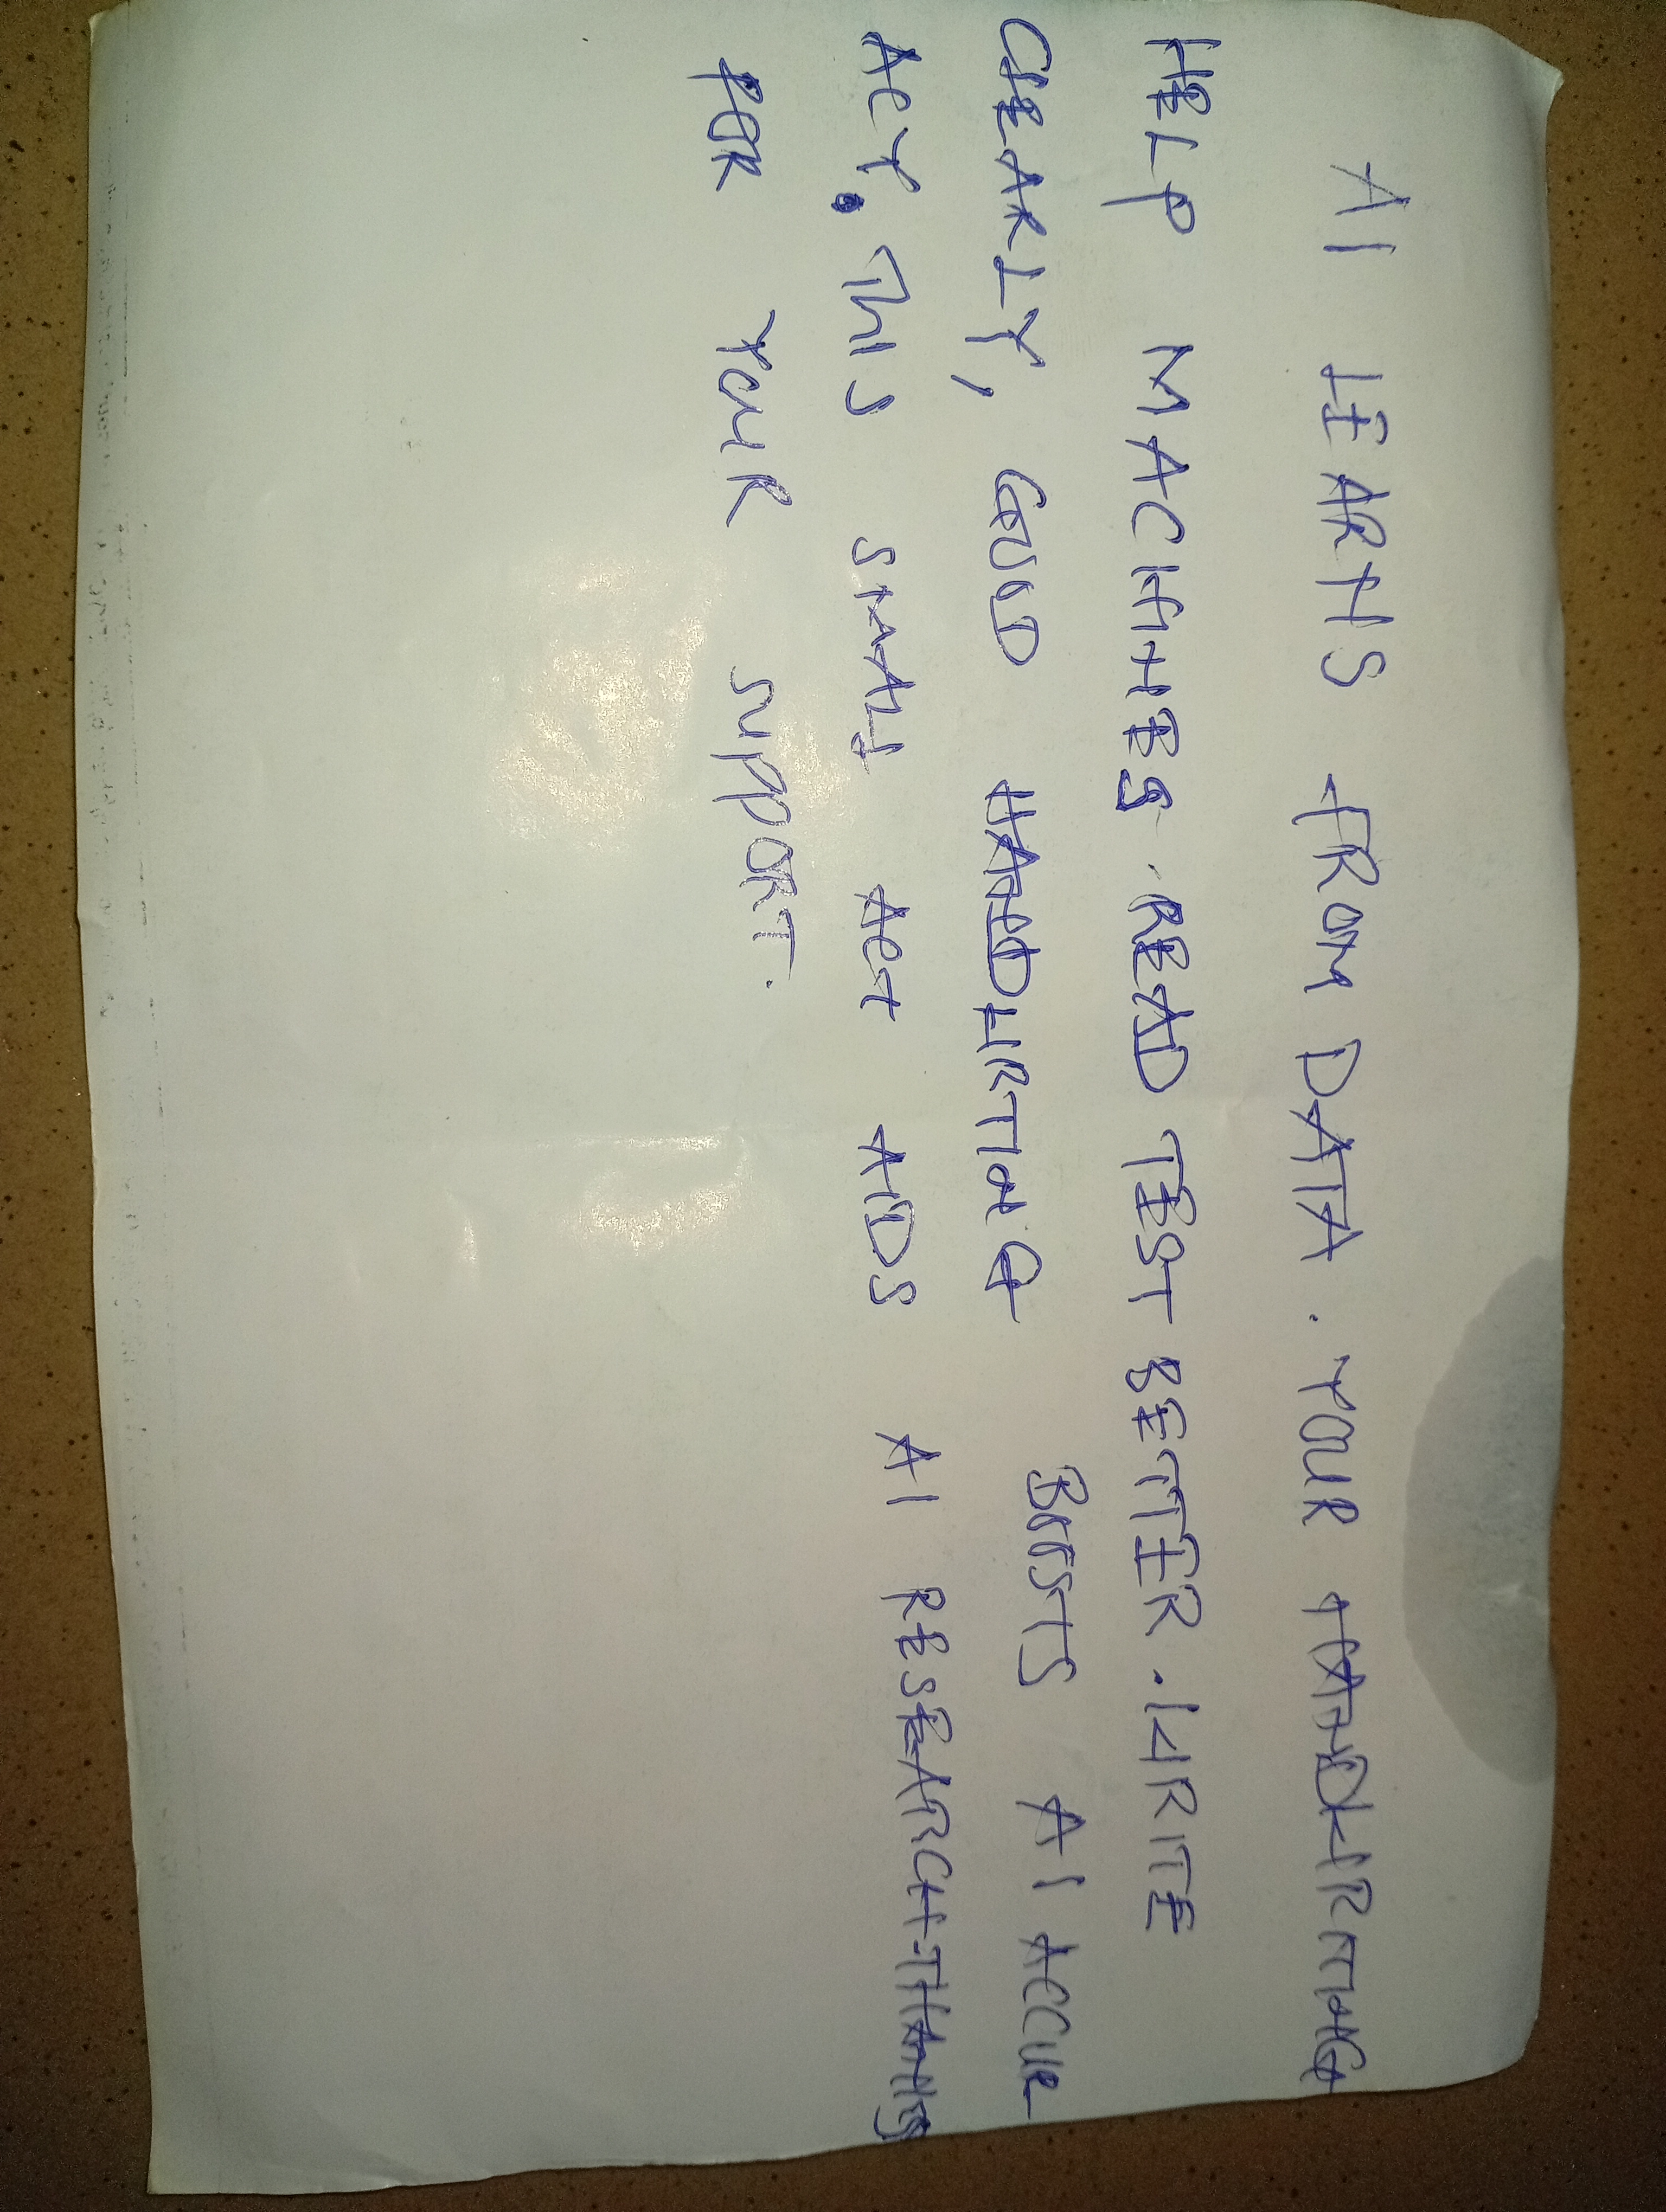 AI LEARNS FROM DATA. YOUR HANDWRITING
HELP MACHINES READ TEST BETTER. WRITE
CLEARLY, GOOD HANDWRITING BOOSTS AI ACCUR
ACY. THIS SMALL ACT AIDS AI RESEARCH-THANKS
FOR YOUR SUPPORT.